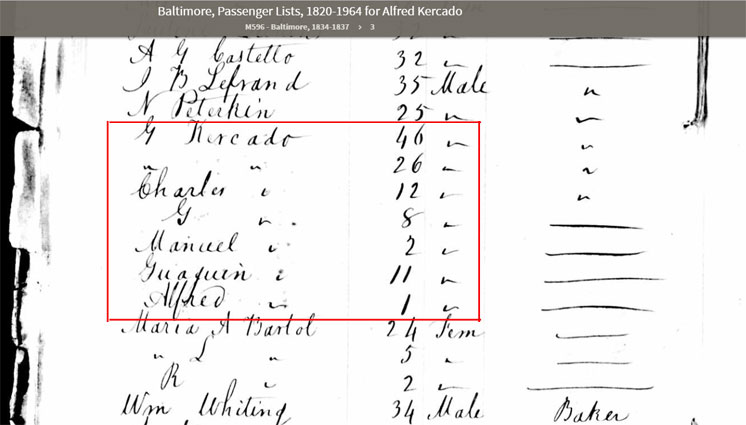 Baltimore, Passenger Lists, 1820-1964 for Alfred Kercado
M596 - Baltimore, 1834-1837 › 3
A G Castello 32 〃
J B Lefrand 35 Male 〃
N Peterkin 25 〃 〃
G Kercado 46 〃 〃
〃 〃 26 〃 〃
Charles 〃 12 〃 〃
G 〃 8 〃
Manuel 〃 2 〃
Guaquin 〃 11 〃
Alfred 〃 1 〃
Maria A Bartol 24 Fem
〃 L 〃 5 〃
R 〃 2 〃
Wm Whiting 34 Male Baker